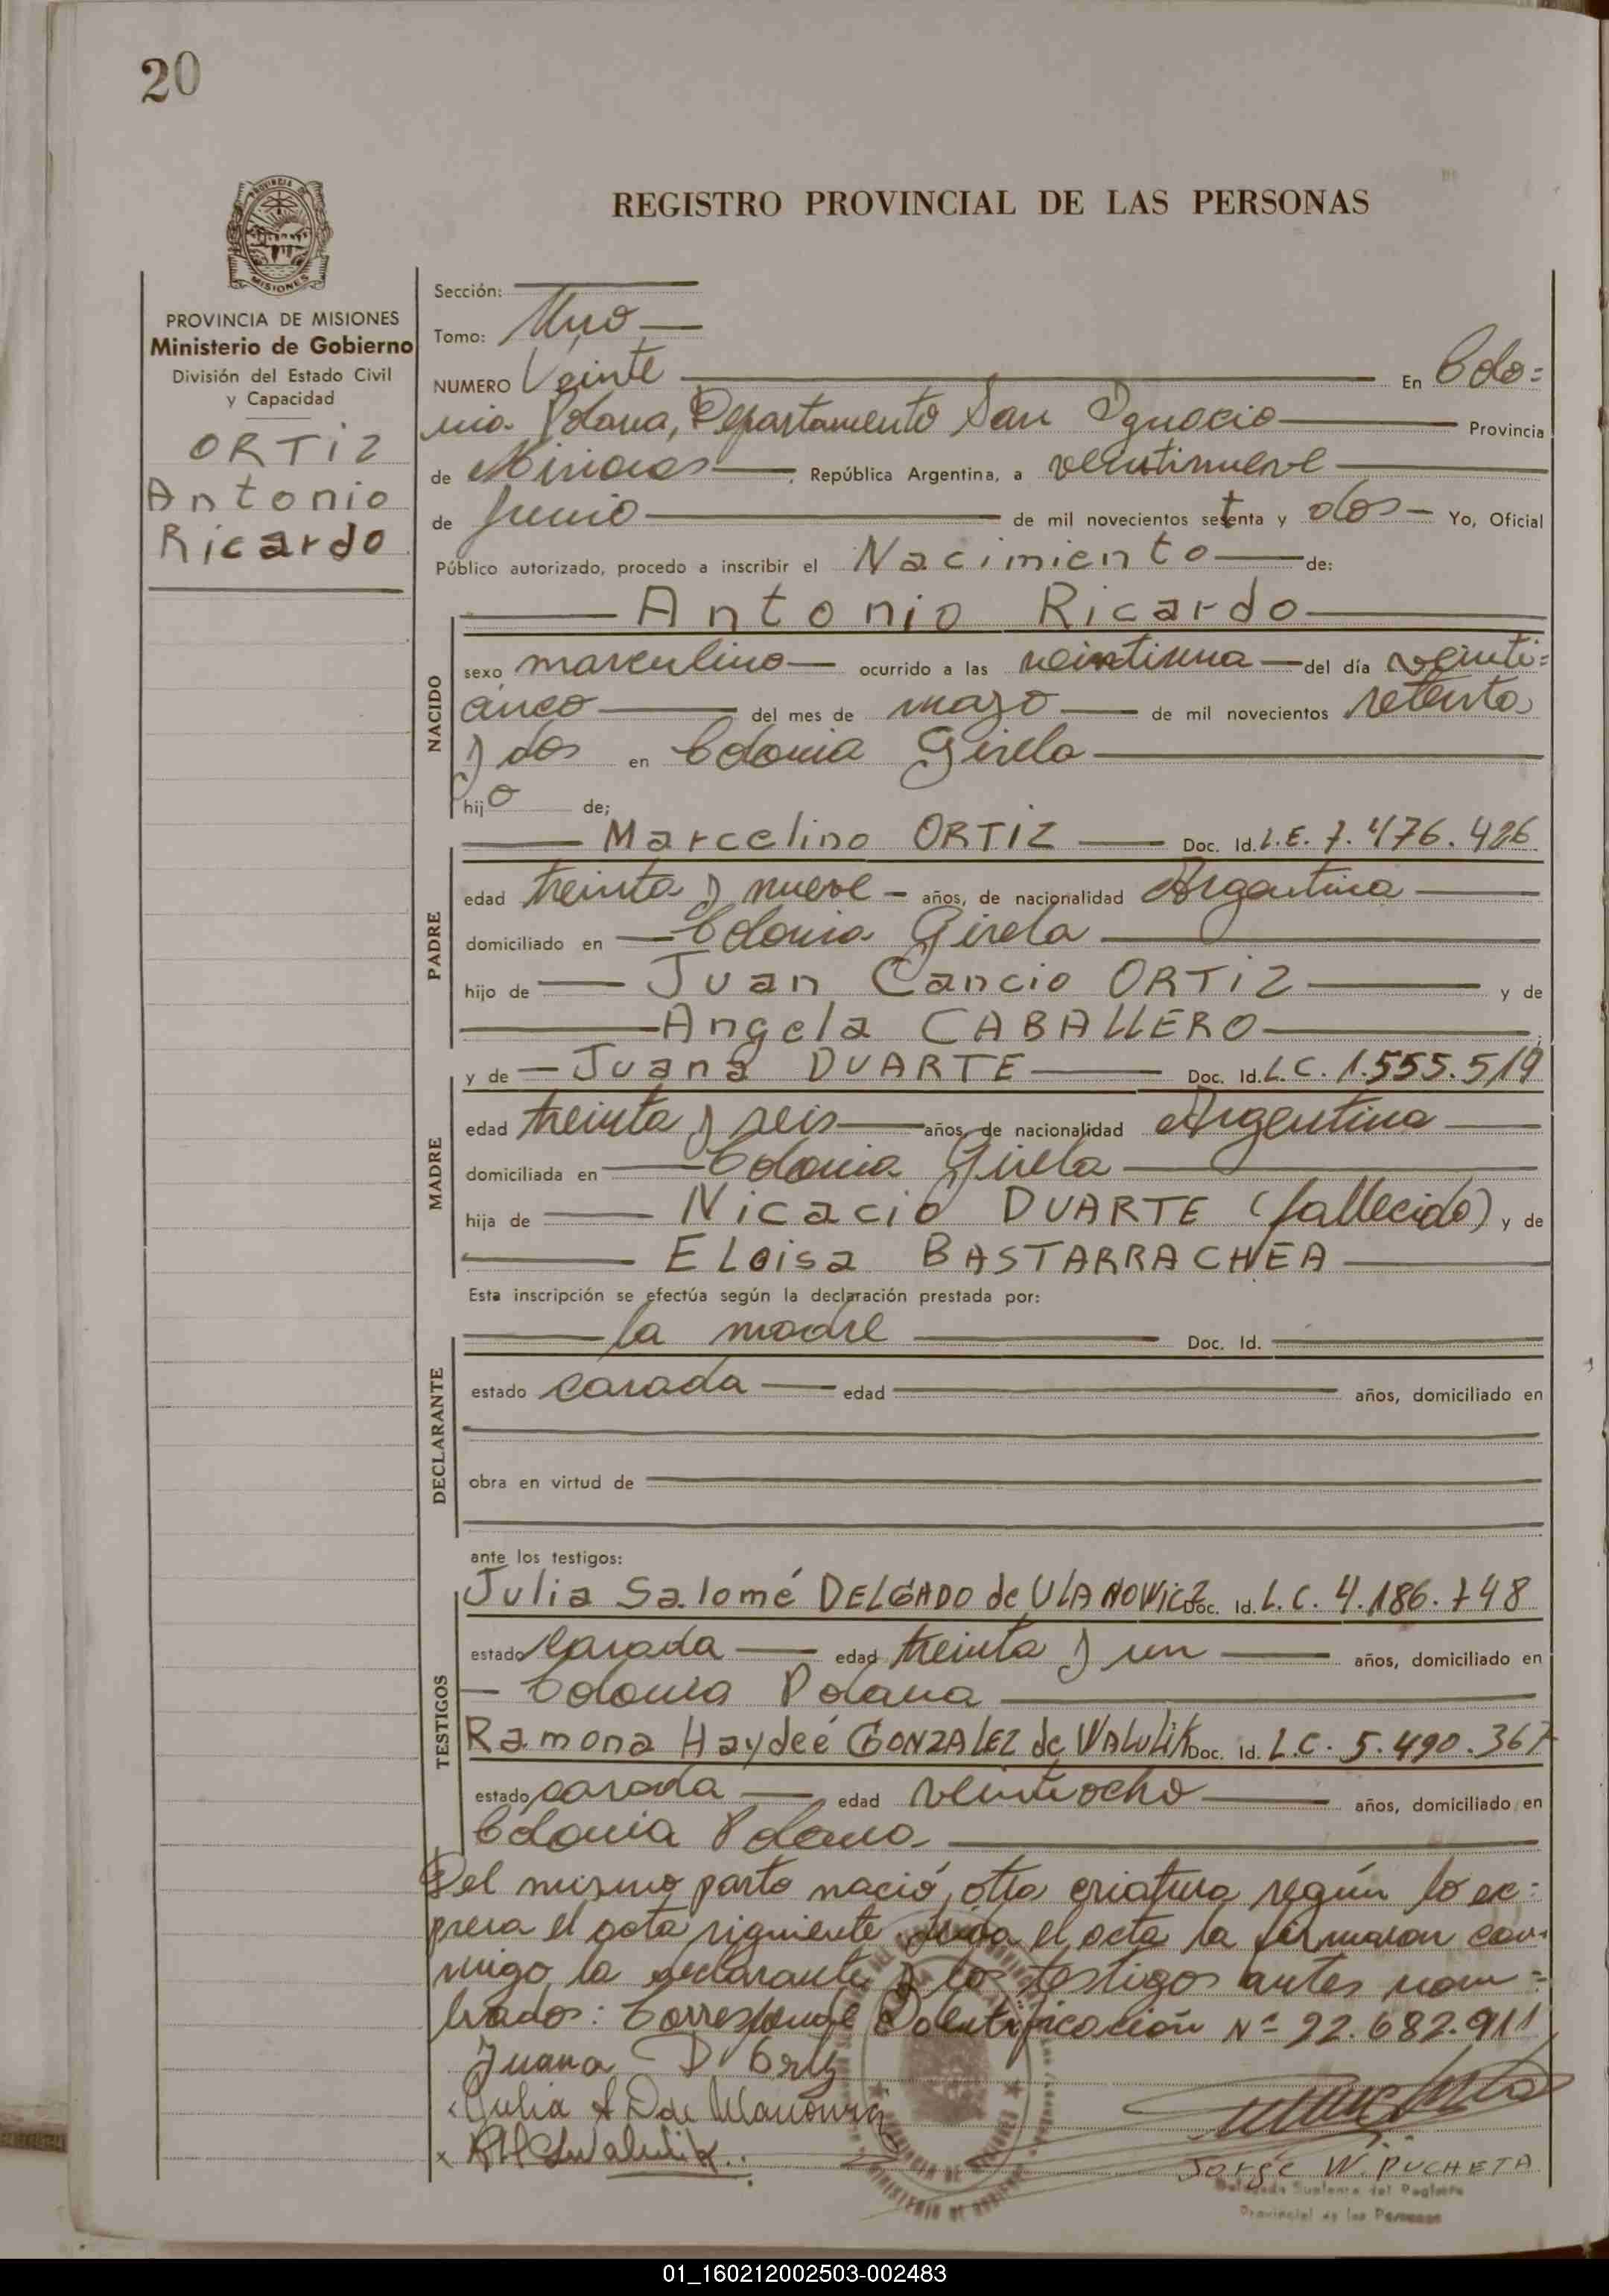 20
PROVINCIA DE
MISIONES
REGISTRO PROVINCIAL DE LAS PERSONAS
PROVINCIA DE MISIONES
Ministerio de Gobierno
División del Estado Civil
y Capacidad
ORTIZ
Antonio
Ricardo
Sección:
Tomo: Uno
NUMERO Veinte En Colo=
nia Polana, Departamento San Ignacio Provincia
de Misiones, República Argentina, a veintinueve
de Junio de mil novecientos setenta y dos Yo, Oficial
Público autorizado, procedo a inscribir el Nacimiento de:
NACIDO
Antonio Ricardo
sexo masculino ocurrido a las veintiuna del día veinti=
cinco del mes de mayo de mil novecientos setenta
y dos en Colonia Gisela
hijo de;
PADRE
Marcelino ORTIZ Doc. Id. L.E. 7.476.426
edad treinta y nueve años, de nacionalidad Argentina
domiciliado en Colonia Gisela
hijo de Juan Cancio ORTIZ y de
Angela CABALLERO
MADRE
y de Juana DUARTE Doc. Id. L.C. 1.555.519
edad treinta y seis años, de nacionalidad Argentina
domiciliada en Colonia Gisela
hija de Nicacio DUARTE (fallecido) y de
Eloisa BASTARRACHEA
Esta inscripción se efectúa según la declaración prestada por:
DECLARANTE
la madre Doc. Id.
estado casada edad años, domiciliado en
obra en virtud de
ante los testigos:
TESTIGOS
Julia Salomé DELGADO de ULANOWICZ Doc. Id. L.C. 4.186.748
estado casada edad treinta y un años, domiciliado en
Colonia Polana
Ramona Haydeé GONZALEZ de WALULIK Doc. Id. L.C. 5.490.367
estado casada edad veintiocho años, domiciliado en
Colonia Polana
Del mismo parto nació otra criatura según lo ex=
presa el acta siguiente el acta la firmaron con=
migo, la declarante y los testigos antes nom=
brados: Corresponde Identificación Nº 22.682.911
Juana D Ortiz
Julia S D de Ulanowicz
RHGWalulik
Jorge W. PUCHETA
Suplente del Registro
Provincial de las Personas
01_160212002503-002483